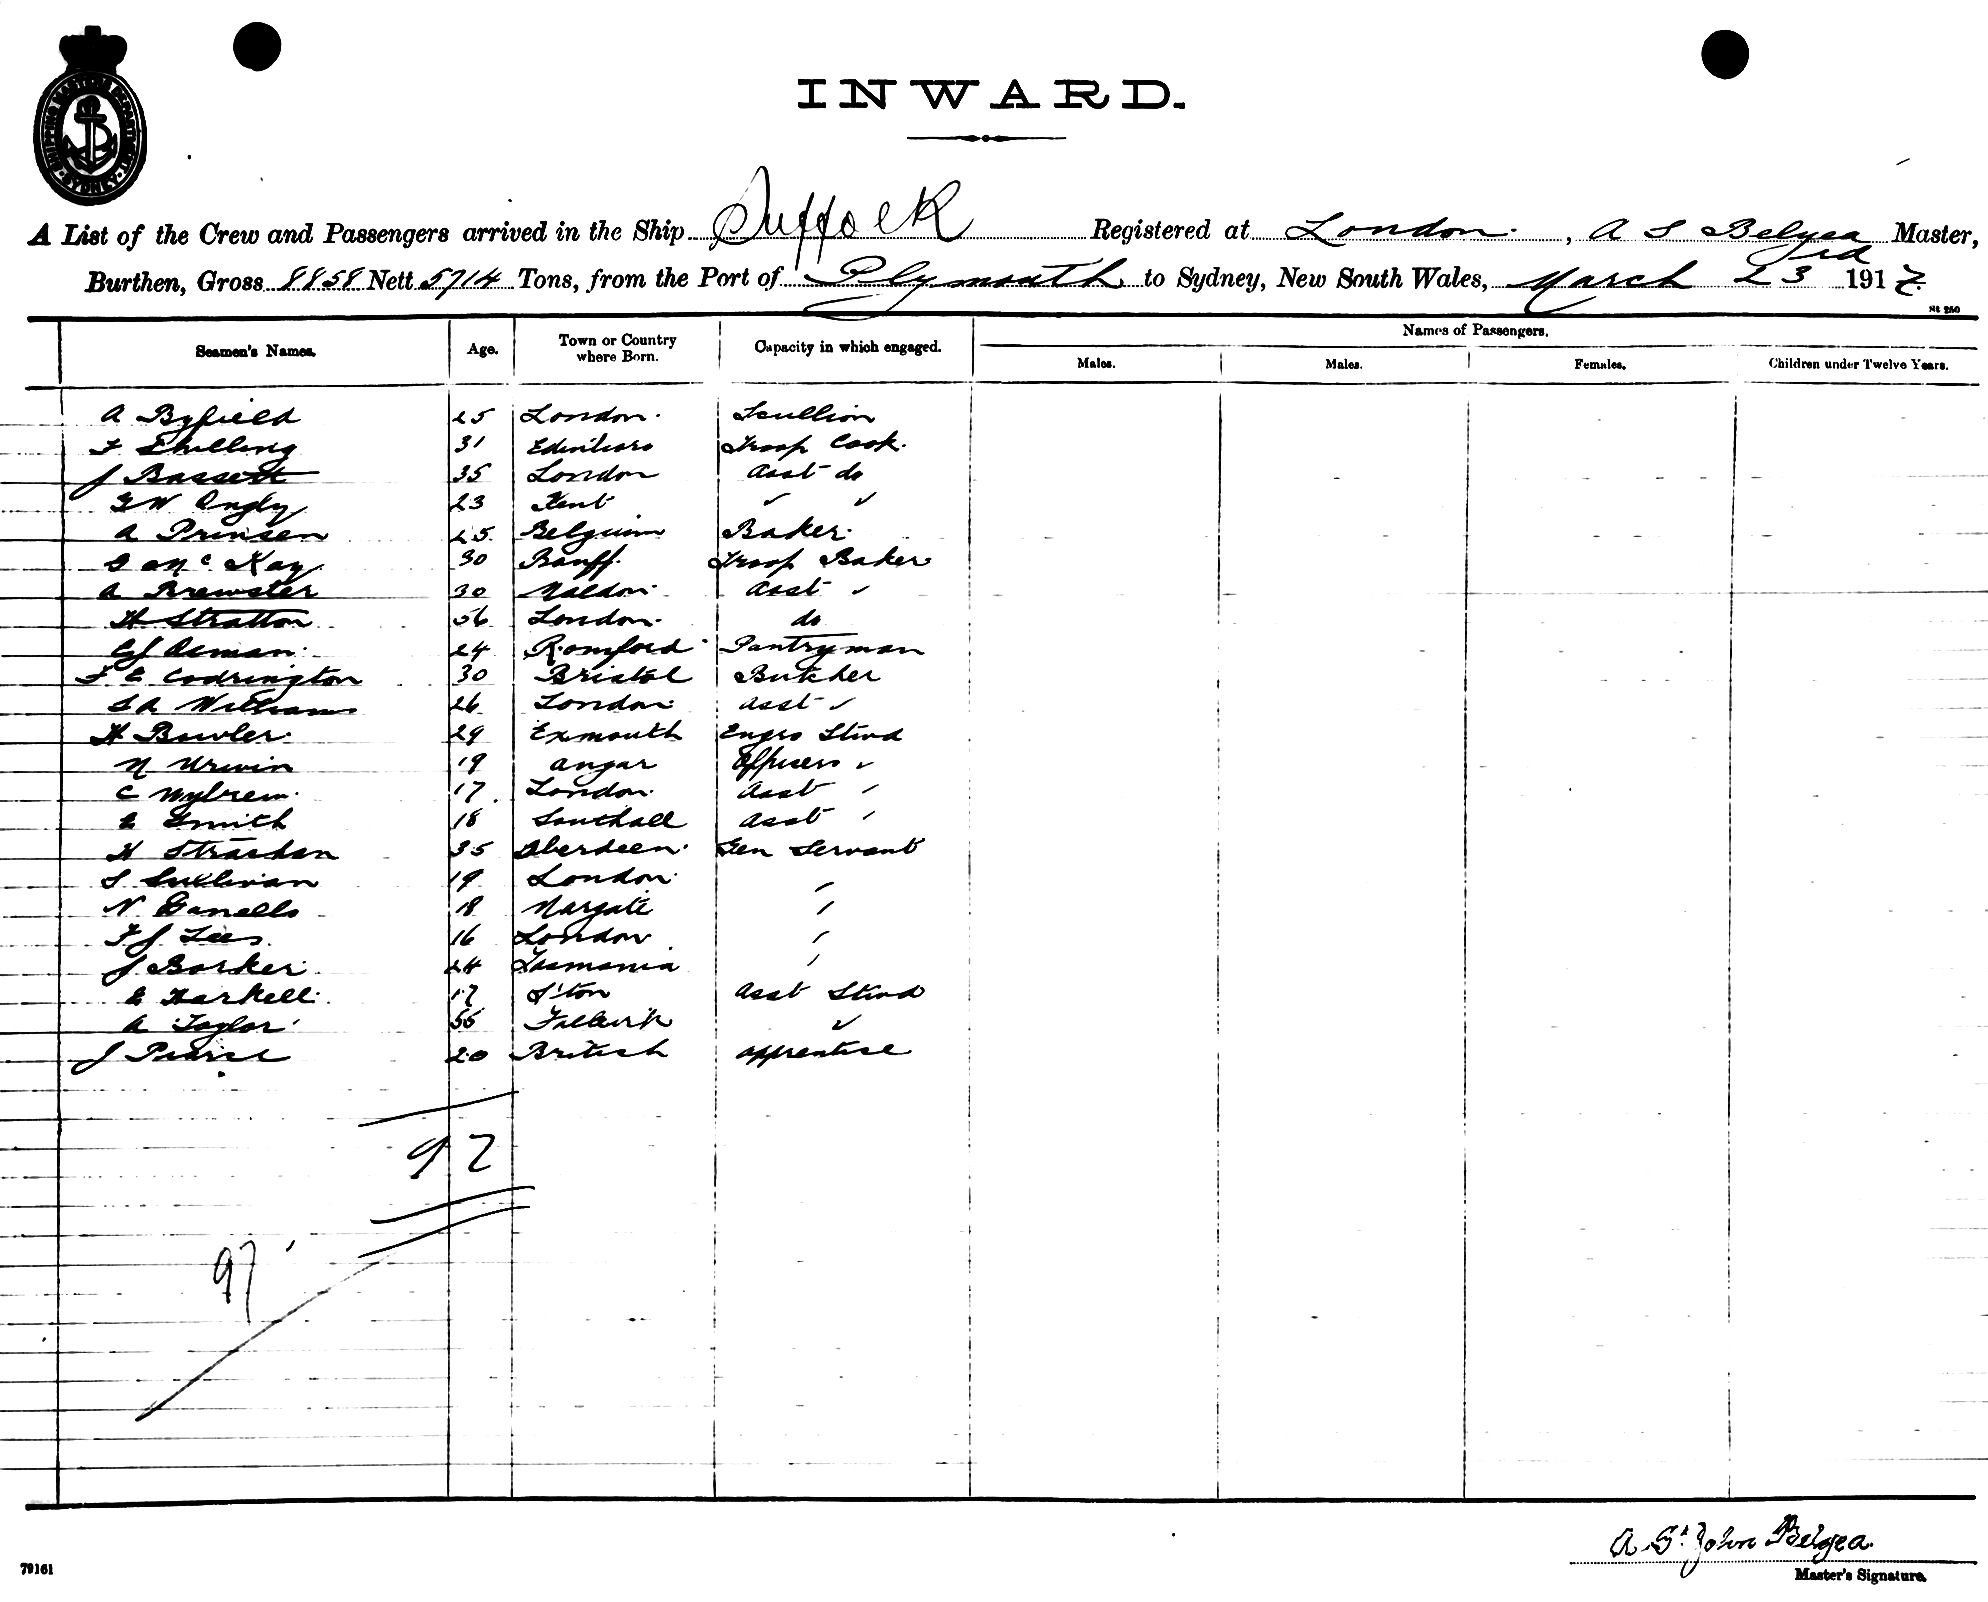 SHIPPING MASTERS DEPARTMENT SYDNEY
INWARD.
A List of the Crew and Passengers arrived in the Ship Suffolk Registered at London, A S Belgea Master,
Burthen, Gross 8858 Nett 5714 Tons, from the Port of Plymouth to Sydney, New South Wales, March 23rd 1917
St 250
Seamen's Names. Age. Town or Country where Born. Capacity in which engaged. Names of Passengers.
Males. Males. Females. Children under Twelve Years.
A Byfield 25 London Scullion
F Shilling 31 Edinboro Troop Cook.
J Bassett 35 London Asst do
23 Kent ✓ ✓
A Prinsen 25 Belgium Baker
G McKay 30 Banff Troop Baker
A Brewster 30 Maldon Asst ✓
H Stratton 56 London do
24 Romford Pantryman
F E Codrington 30 Bristol Butcher
S A Williams 26 London Asst ✓
H Bowler 29 Exmouth Engrs Stwd
N Urwin 19 Ongar Officers ✓
C Wybrew 17 London Asst ✓
E Smith 18 Southall Asst ✓
H Strachan 35 Aberdeen Gen Servant
S Sullivan 19 London ✓
N 18 Margate ✓
F J Lees 16 London ✓
J Barker 24 Tasmania ✓
E Harkell 17 S'ton Asst Stwd
A Taylor 55 Falkirk ✓
J Pearse 20 British Apprentise
97
97
A St John Belgea
Master's Signature.
79161